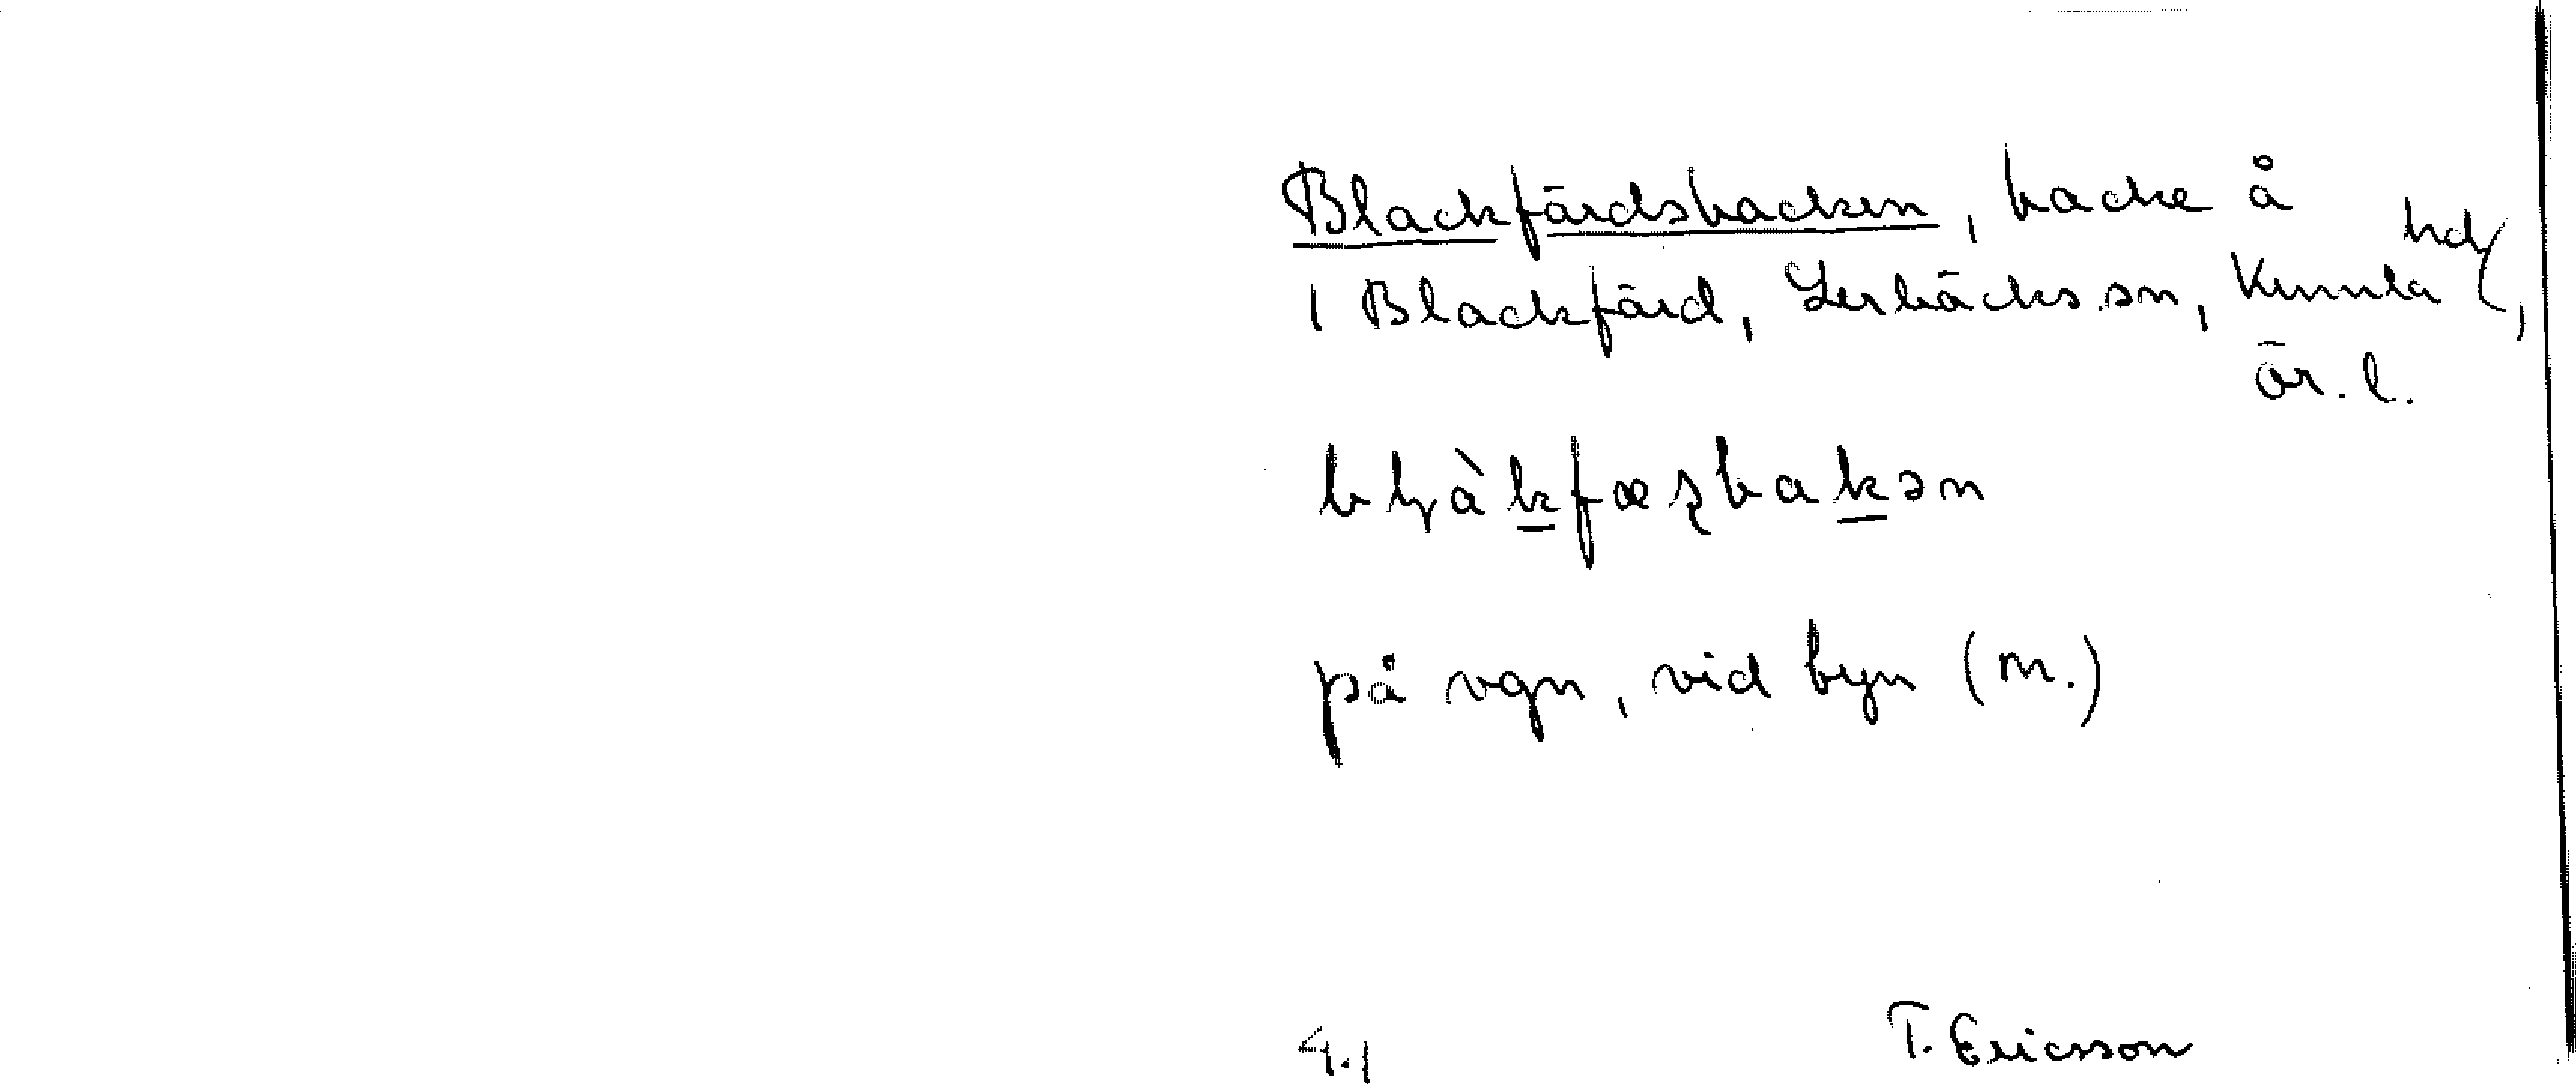 Blackfärdsbacken, backe å
1 Blackfärd, Lerbäcks sn, Kumla hd,
ör. l.
bḷàkfæṣbakən
på vgn, vid byn (m.)
4.1 T. Ericsson